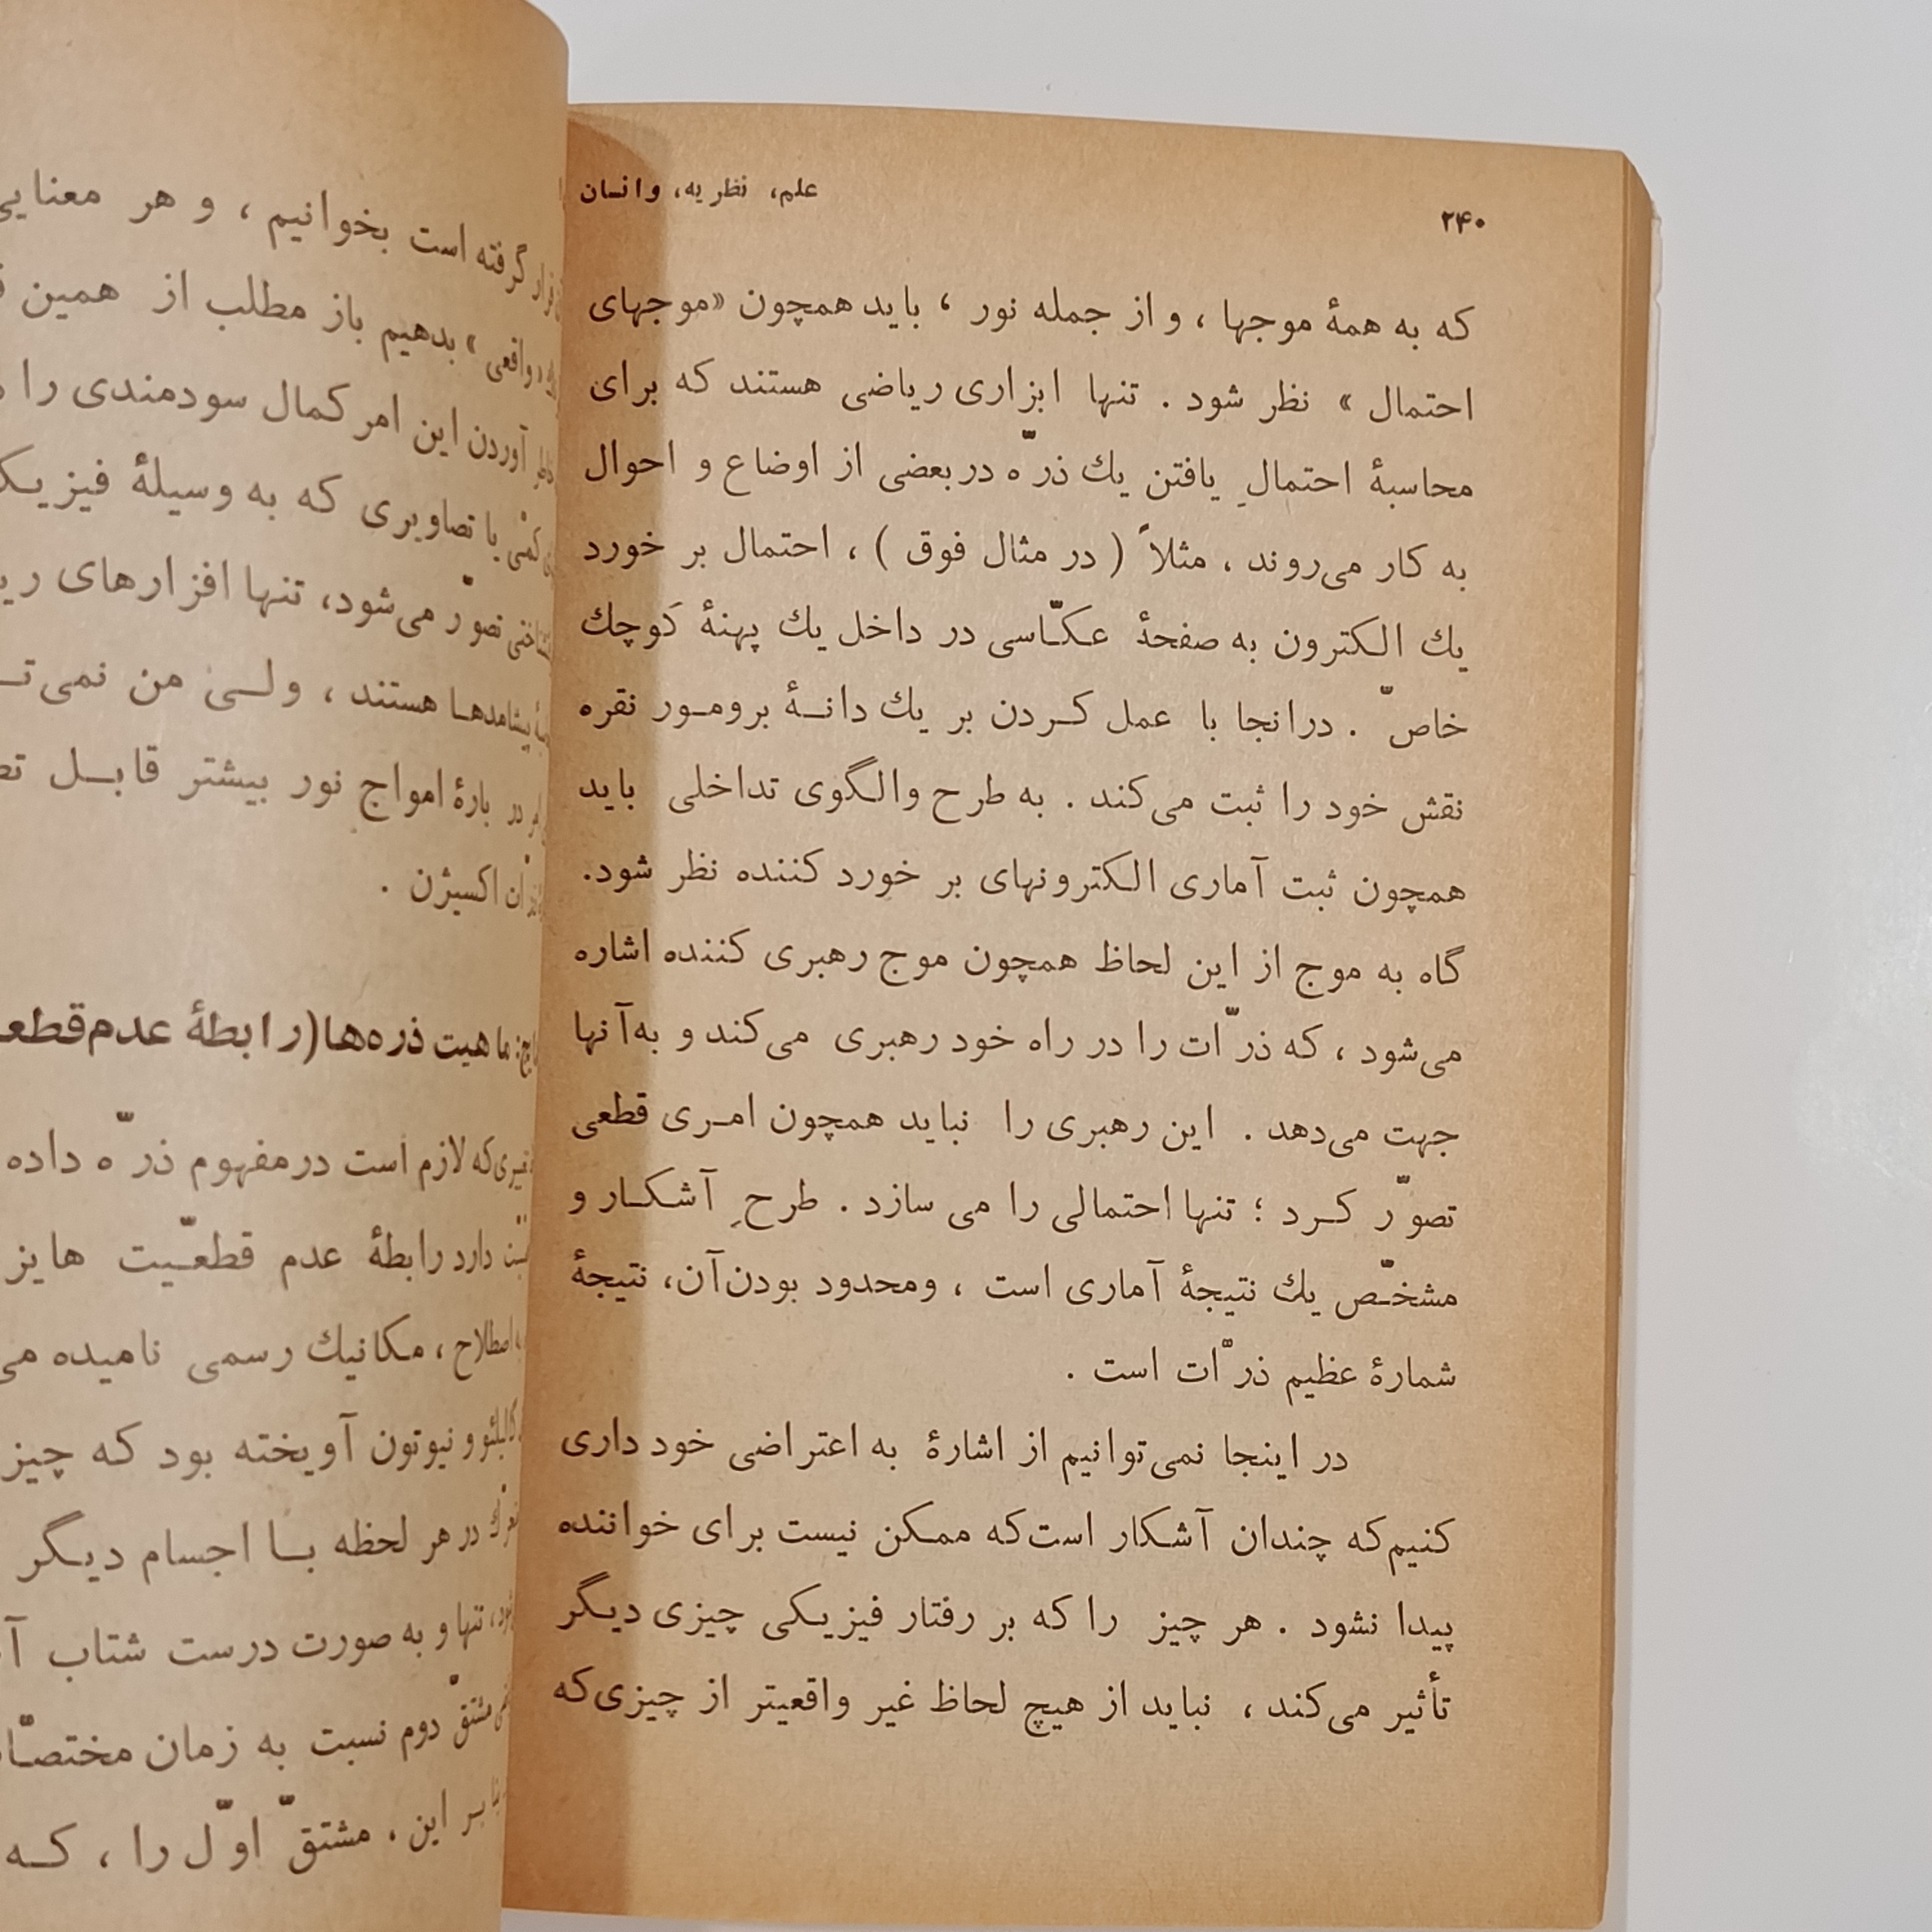 علم، نظریه، وانسان
۲۴۰
که به همهٔ موجها ، و از جمله نور ، باید همچون «موجهای
احتمال » نظر شود . تنها ابزاری ریاضی هستند که برای
محاسبهٔ احتمالِ یافتن یك ذرّه دربعضی از اوضاع و احوال
به کار می‌روند ، مثلاً ( در مثال فوق ) ، احتمال بر خورد
یك الکترون به صفحهٔ عکّاسی در داخل یك پهنهٔ کوچك
خاصّ . درانجا با عمل کردن بر یك دانهٔ برومور نقره
نقش خود را ثبت می‌کند . به طرح والگوی تداخلی باید
همچون ثبت آماری الکترونهای بر خورد کننده نظر شود.
گاه به موج از این لحاظ همچون موج رهبری کننده اشاره
می‌شود ، که ذرّات را در راه خود رهبری می‌کند و به‌آنها
جهت می‌دهد . این رهبری را نباید همچون امری قطعی
تصوّر کرد ؛ تنها احتمالی را می سازد . طرحِ آشکار و
مشخّص یك نتیجهٔ آماری است ، ومحدود بودن‌آن، نتیجهٔ
شمارهٔ عظیم ذرّات است .
در اینجا نمی‌توانیم از اشارهٔ به اعتراضی خود داری
کنیم‌که چندان آشکار است‌که ممکن نیست برای خواننده
پیدا نشود . هر چیز را که بر رفتار فیزیکی چیزی دیگر
تأثیر می‌کند ، نباید از هیچ لحاظ غیر واقعیتر از چیزی‌که
گرفته است بخوانیم ، و هر معنایی
واقعی » بدهیم باز مطلب از همین
آوردن این امر کمال سودمندی را
یا تصاویری که به وسیلهٔ
تصوّر می‌شود، تنها افزارهای
پیشامدها هستند ، ولی من
در بارهٔ امواج نور بیشتر قابل
اکسیژن .
ماهیت ذره‌ها(رابطهٔ
که لازم است درمفهوم ذرّه داده
دارد رابطهٔ عدم قطعّیت
اصطلاح ، مکانیك رسمی نامیده
و نیوتون آویخته بود که
در هر لحظه با اجسام دیگر
تنها و به صورت درست شتاب
مشتقّ دوم نسبت به زمان
این . مشتقّ اوّل را ، که